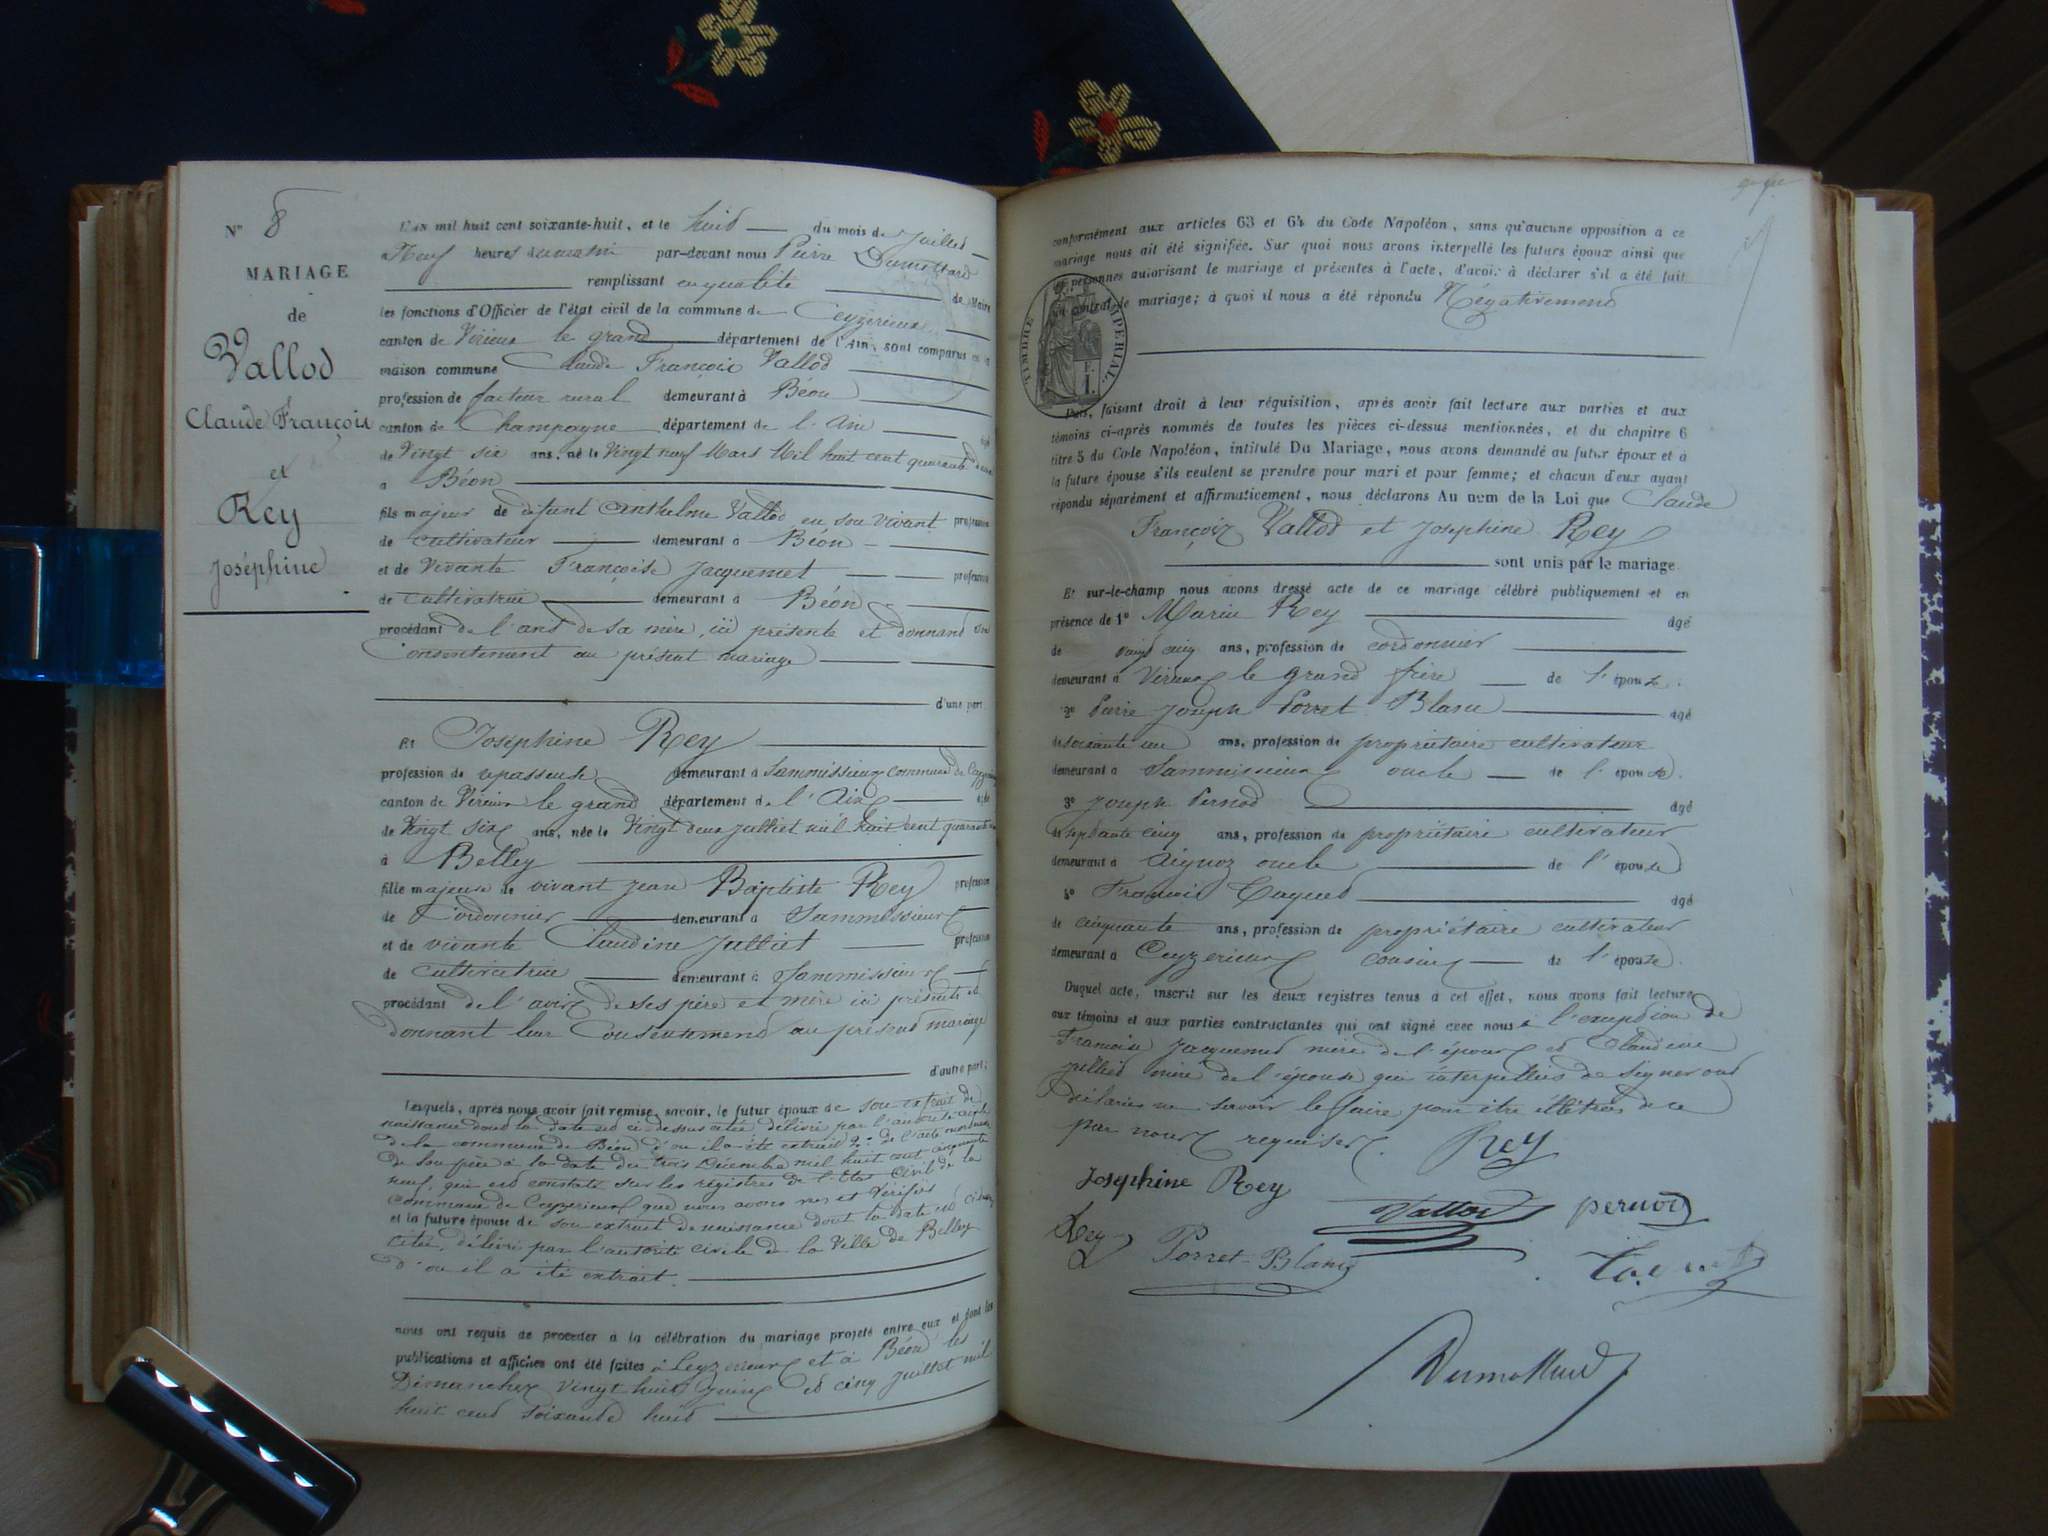 N° 8
MARIAGE
de
Vallod
Claude François
et
Rey
Joséphine
L'an mil huit cent soixante-huit, et le huit du mois de Juillet
à Neuf heures du matin par-devant nous Pierre Dumollard
remplissant en qualité de Maire
les fonctions d'Officier de l'état civil de la commune de Ceyzerieux
canton de Virieux le grand département de l'Ain, sont comparus en la
maison commune Claude François Vallod
profession de facteur rural demeurant à Béon
canton de Champagne département de l'Ain âgé
de Vingt six ans, né le Vingt neuf Mars Mil huit cent quarante deux
à Béon
fils majeur de défunt Anthelme Vallod en son vivant profession
de cultivateur demeurant à Béon
et de vivante Françoise Jacquemet profession
de cultivatrice demeurant à Béon
procédant de l'avis de sa mère, ici présente et donnant son
Consentement au présent mariage
d'une part.
Et Joséphine Rey
profession de repasseuse demeurant à Sammissieux commune de Ceyzerieux
canton de Virieux le grand département de l'Ain âgée
de Vingt six ans, née le Vingt deux Juillet mil huit cent quarante
à Belley
fille majeure de vivant Jean Baptiste Rey profession
de Cordonnier demeurant à Sammissieux
et de vivante Claudine Julliet profession
de cultivatrice demeurant à Sammissieux
procédant de l'avis de ses père et mère ici présents et
donnant leur Consentement au présent mariage
d'autre part;
Lesquels, après nous avoir fait remise, savoir, le futur époux de son extrait de
naissance dont la date est ci-dessus citée délivré par l'autorité civile
de la commune de Béon d'où il a été extrait 2° de l'acte mortuaire
de son père à la date du trois Décembre mil huit cent cinquante
neuf, qui est constaté sur les registres de l'Etat Civil de la
commune de Ceyzerieux que nous avons vus et vérifiés
et la future épouse de son extrait de naissance dont la date est ci dessus
citée, délivré par l'autorité civile de la Ville de Belley
d'où il a été extrait.
nous ont requis de procéder à la célébration du mariage projeté entre eux et dont les
publications et affiches ont été faites à Ceyzerieux et à Béon les
Dimanches vingt huit Juin et cinq juillet mil
huit cent soixante huit
conformément aux articles 63 et 64 du Code Napoléon, sans qu'aucune opposition à ce
mariage nous ait été signifiée. Sur quoi nous avons interpellé les futurs époux ainsi que
les personnes autorisant le mariage et présentes à l'acte, d'avoir à déclarer s'il a été fait
un contrat de mariage; à quoi il nous a été répondu Négativement
TIMBRE IMPERIAL
Puis, faisant droit à leur réquisition, après avoir fait lecture aux parties et aux
témoins ci-après nommés de toutes les pièces ci-dessus mentionnées, et du chapitre 6
titre 5 du Code Napoléon, intitulé Du Mariage, nous avons demandé au futur époux et à
la future épouse s'ils veulent se prendre pour mari et pour femme; et chacun d'eux ayant
répondu séparément et affirmativement, nous déclarons Au nom de la Loi que Claude
François Vallod et Joséphine Rey
sont unis par le mariage.
Et sur-le-champ nous avons dressé acte de ce mariage célébré publiquement et en
présence de 1° Marin Rey âgé
de vingt cinq ans, profession de cordonnier
demeurant à Virieux le grand frère de l'épouse.
2° Pierre Joseph Porret Blanc âgé
de soixante un ans, profession de propriétaire cultivateur
demeurant à Sammissieux oncle de l'épouse.
3° Joseph Pernod âgé
de septante cinq ans, profession de propriétaire cultivateur
demeurant à Aignoz oncle de l'épouse
4° François âgé
de cinquante ans, profession de propriétaire cultivateur
demeurant à Ceyzerieux cousin de l'épouse.
Duquel acte, inscrit sur les deux registres tenus à cet effet, nous avons fait lecture
aux témoins et aux parties contractantes qui ont signé avec nous à l'exception de
Françoise Jacquemet mère de l'époux et Claudine
Julliet mère de l'épouse qui interpellées de signer ont
déclaré ne savoir le faire pour être illétrées de ce
par nous requises.
Rey
Joséphine Rey
Vallod
pernod
Rey
Porret-Blanc
Dumollard